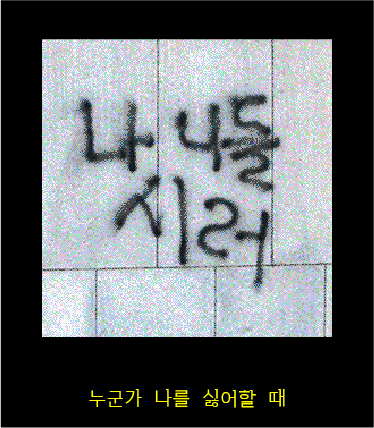 나 너들
시러
누군가 나를 싫어할 때